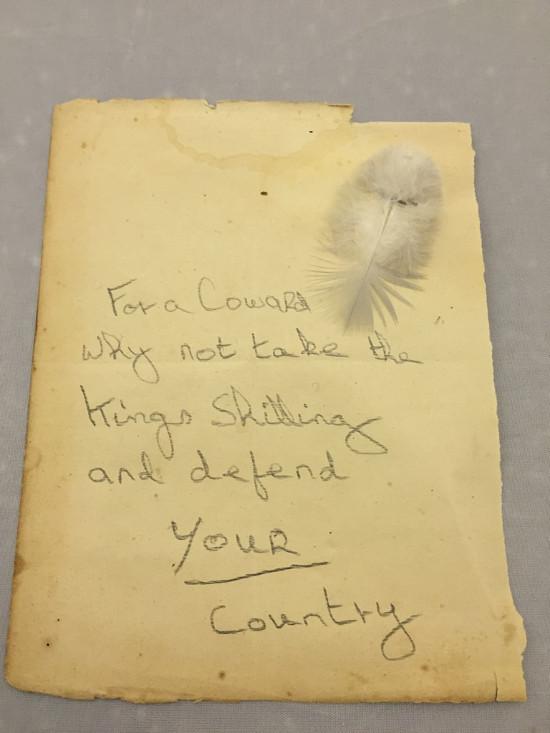 For a Coward
why not take the
Kings Shilling
and defend
YOUR
Country